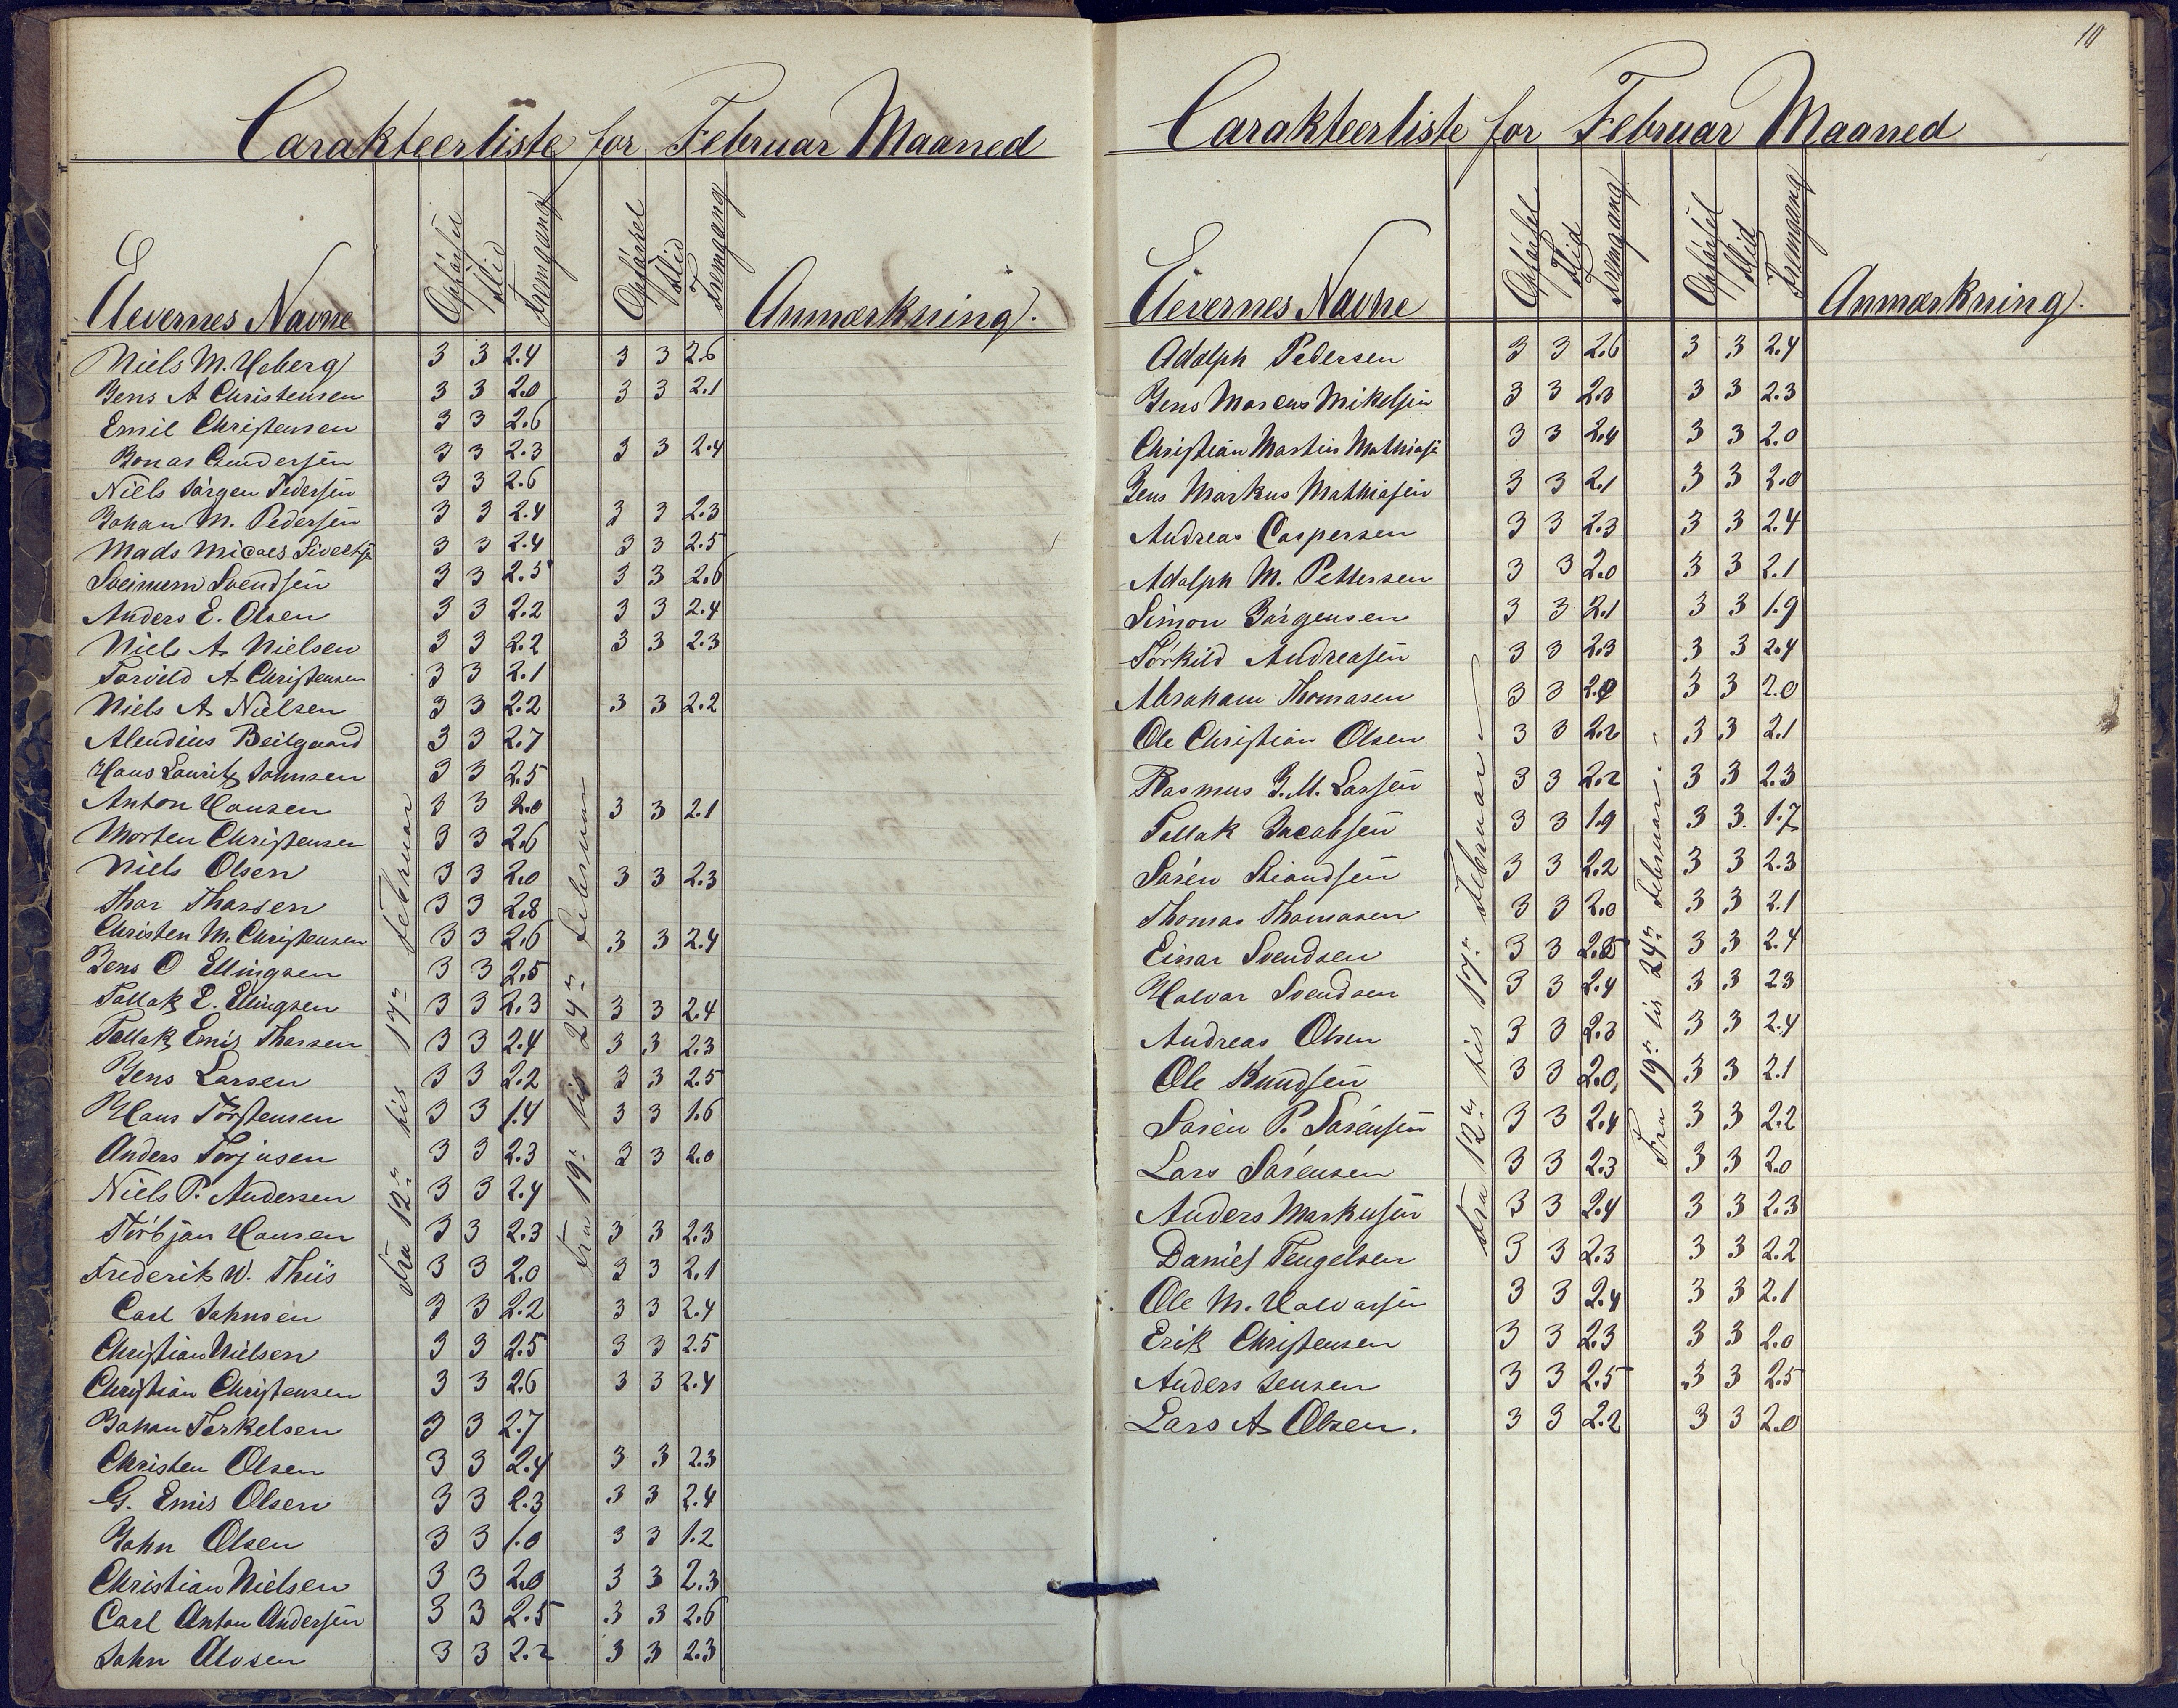 Carakteerliste for Februar Maaned
Elevernes Navne Opførsel Flid Fremgang Opførsel Flid Fremgang Anmærkning.
Fra 12te tis 17de Februar
Fra 19de tis 24de Februar
Niels M. Heberg 3 3 2.4 3 3 2.6
Jens A Christensen 3 3 2.0 3 3 2.1
Emil Christensen 3 3 2.6
Gundersen 3 3 2.3 3 3 2.4
Niels Jørgen Pedersen 3 3 2.6
Johan M. Pedersen 3 3 2.4 3 3 2.3
Mads 3 3 2.4 3 3 2.5
Svendsen 3 3 2.5 3 3 2.6
Anders E. Olsen 3 3 2.2 3 3 2.4
Niels A. Nielsen 3 3 2.2 3 3 2.3
Torvild A Christensen 3 3 2.1
Niels A. Nielsen 3 3 2.2 3 3 2.2
Beilgaard 3 3 2.7
Hans Lauritz Johnsen 3 3 2.5
Anton Hansen 3 3 2.0 3 3 2.1
Morten Christensen 3 3 2.6
Niels Olsen 3 3 2.0 3 3 2.3
Thor Thorsen 3 3 2.8
Christen M. Christensen 3 3 2.6 3 3 2.4
Jens O Ellingsen 3 3 2.5
Tallak E. Ellingsen 3 3 2.3 3 3 2.4
Tallak Emis Thorsen 3 3 2.4 3 3 2.3
Jens Larsen 3 3 2.2 3 3 2.5
Hans Torstensen 3 3 1.4 3 3 1.6
Anders Torjusen 3 3 2.3 3 3 2.0
Niels P. Andersen 3 3 2.4
Torbjørn Hansen 3 3 2.3 3 3 2.3
Frederik W. Thiis 3 3 2.0 3 3 2.1
Carl Johnsen 3 3 2.2 3 3 2.4
Christian Nielsen 3 3 2.5 3 3 2.5
Christian Christensen 3 3 2.6 3 3 2.4
Johan Terkelsen 3 3 2.7
Christen Olsen 3 3 2.4 3 3 2.3
G. Emis Olsen 3 3 2.3 3 3 2.4
John Olsen 3 3 1.0 3 3 1.2
Christian Nielsen 3 3 2.0 3 3 2.3
Carl Anton Andersen 3 3 2.5 3 3 2.6
John Alvsen 3 3 2.2 3 3 2.3
10
Carakteerliste for Februar Maaned
Elevernes Navne Opførsel Flid Fremgang Opførsel Flid Fremgang Anmærkning.
Fra 12te tis 17de Februar
Fra 19de tis 24de Februar.
Adolph Pedersen 3 3 2.6 3 3 2.4
Jens Marcus Mikelsen 3 3 2.3 3 3 2.3
Christian Martin Mathiasen 3 3 2.4 3 3 2.0
Jens Markus Mathiasen 3 3 2.1 3 3 2.0
Andreas Caspersen 3 3 2.3 3 3 2.4
Adolph M. Pettersen 3 3 2.0 3 3 2.1
Simon Jørgensen 3 3 2.1 3 3 1.9
Torkild Andreasen 3 3 2.3 3 3 2.4
Abraham Thomasen 3 3 2.0 3 3 2.0
Ole Christian Olsen 3 3 2.2 3 3 2.1
Rasmus J. M. Larsen 3 3 2.2 3 3 2.3
Tallak Jacobsen 3 3 1.9 3 3 1.7
Søren 3 3 2.2 3 3 2.3
Thomas Thomasen 3 3 2.0 3 3 2.1
Einar Svendsen 3 3 2.5 3 3 2.4
Halvar Svendsen 3 3 2.4 3 3 2.3
Andreas Olsen 3 3 2.3 3 3 2.4
Ole Knudsen 3 3 2.0 3 3 2.1
Søren P. Sørensen 3 3 2.4 3 3 2.2
Lars Sørensen 3 3 2.3 3 3 2.0
Anders Markusen 3 3 2.4 3 3 2.3
Daniel Tengelsen 3 3 2.3 3 3 2.2
Ole M. Halvorsen 3 3 2.4 3 3 2.1
Erik Christensen 3 3 2.3 3 3 2.0
Anders Jensen 3 3 2.5 3 3 2.5
Lars A. Olsen. 3 3 2.2 3 3 2.0